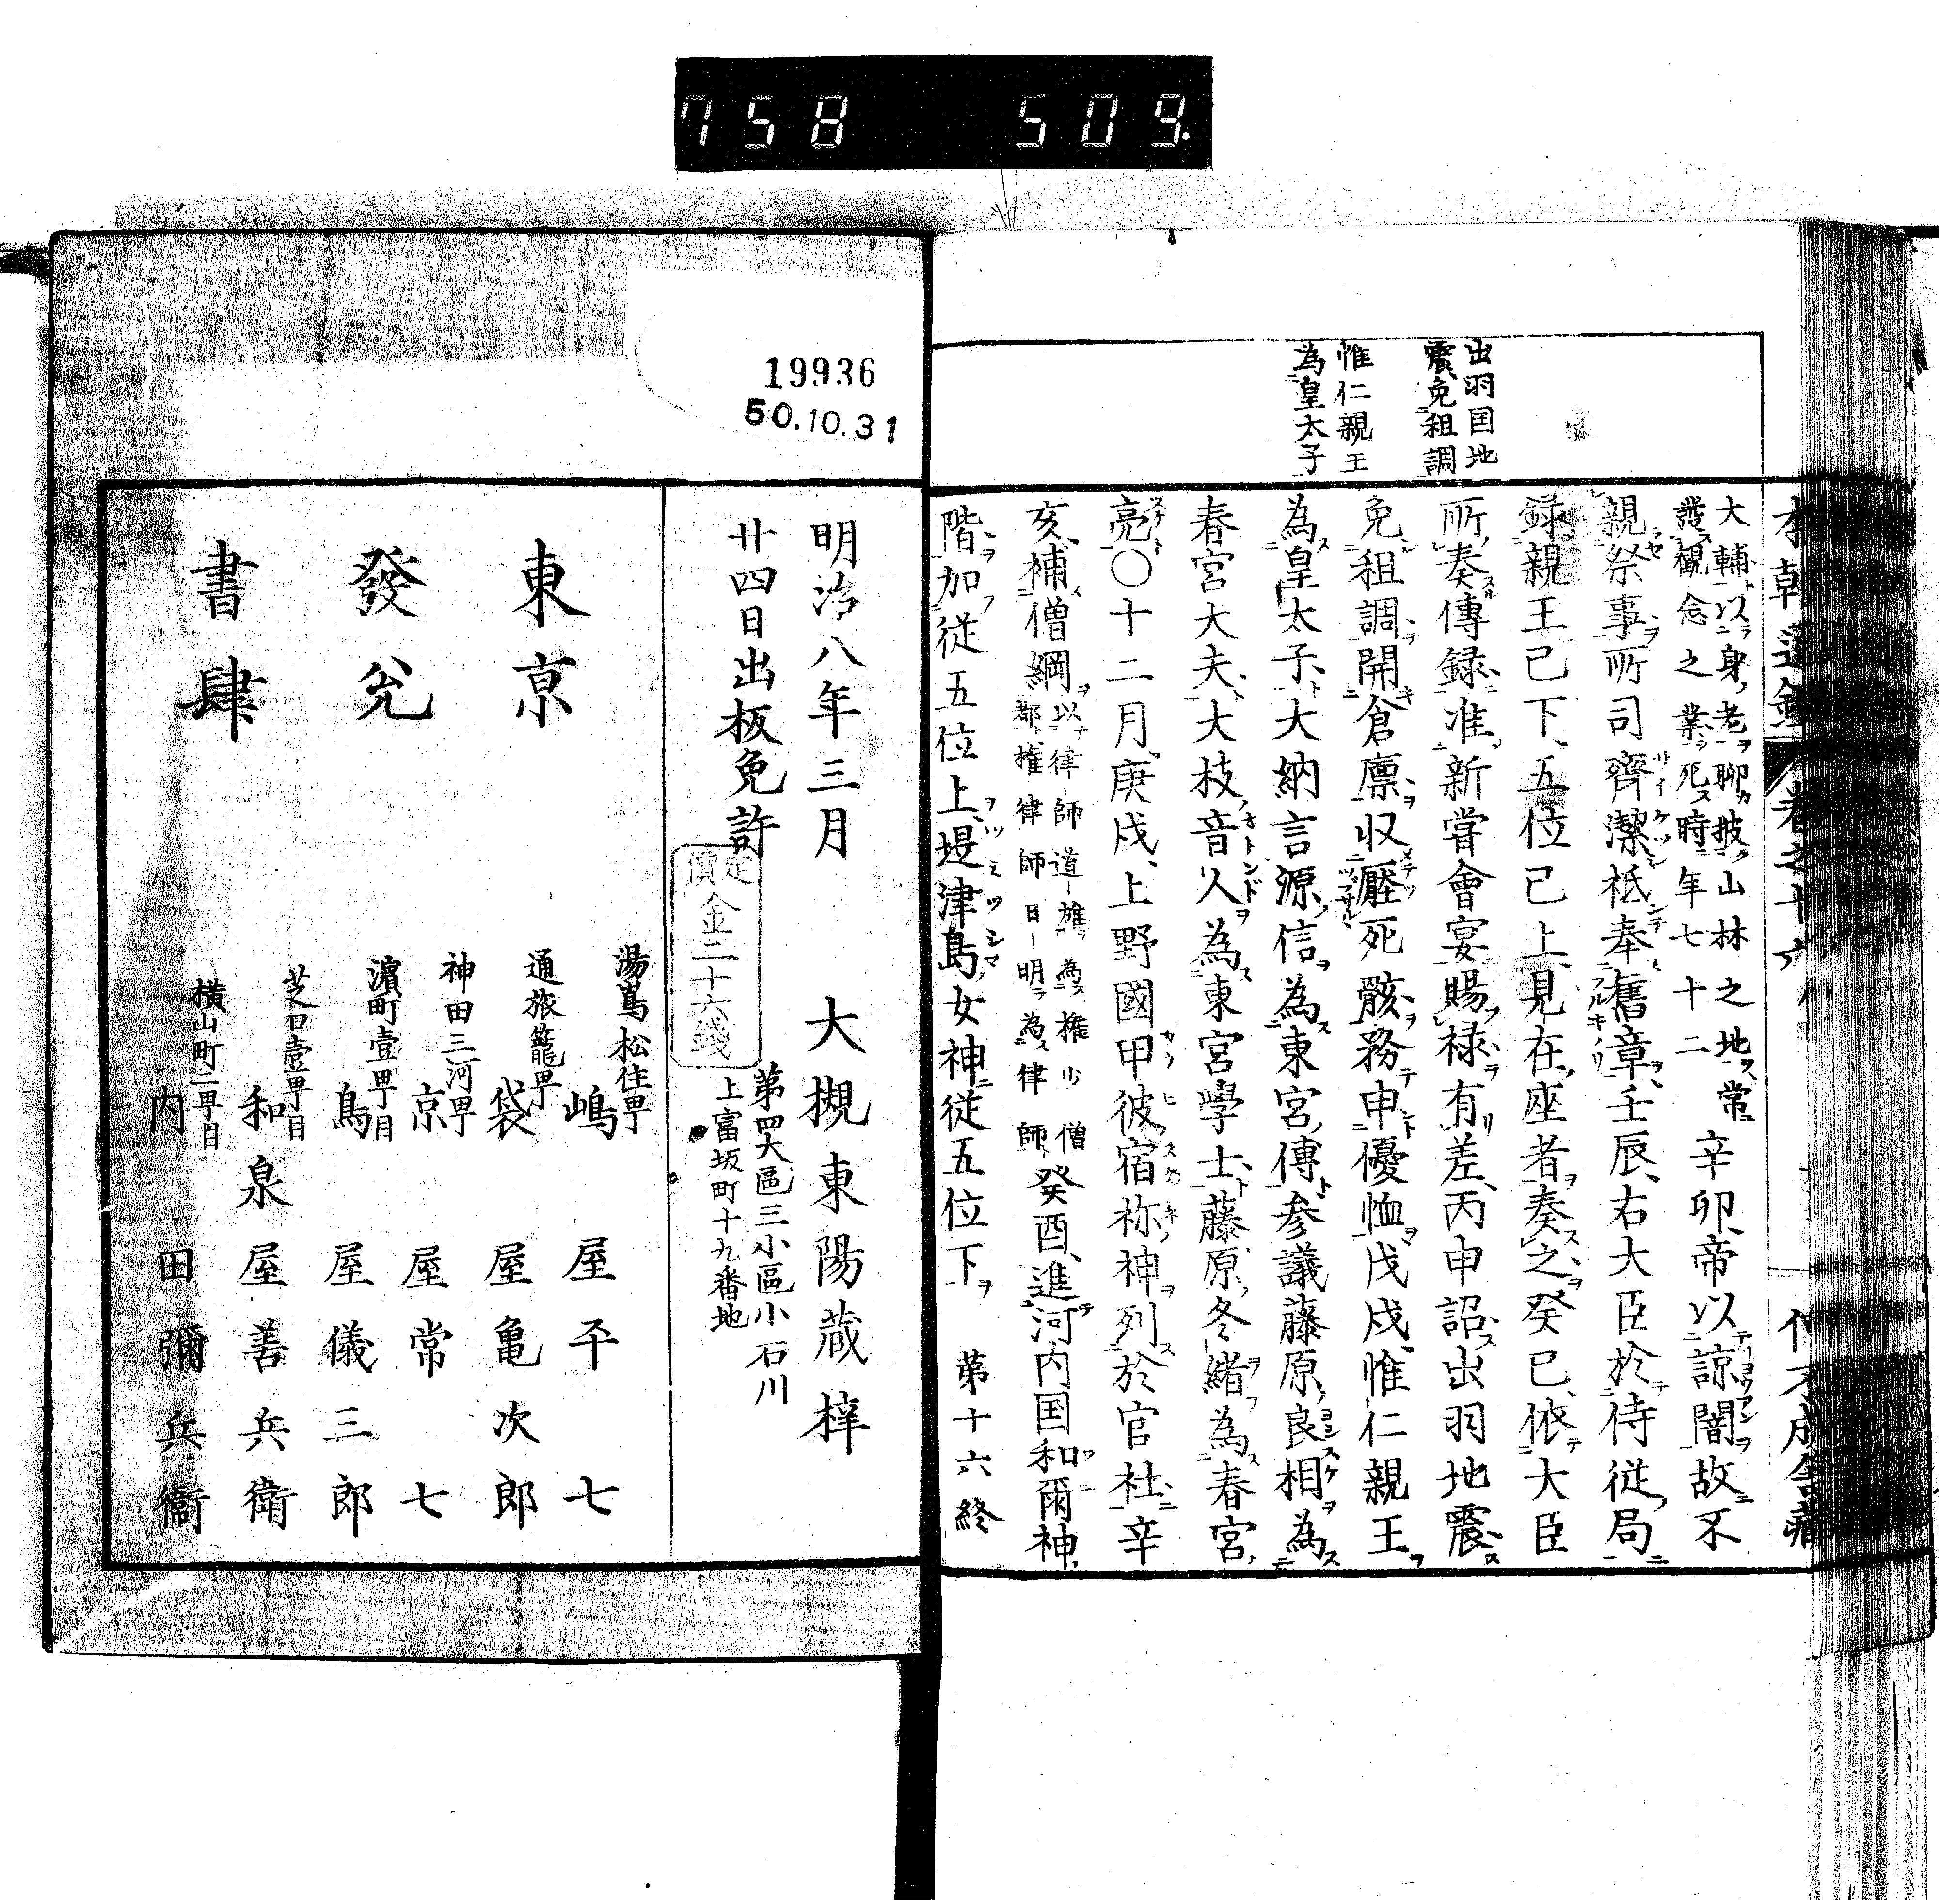 758 509
出羽国地
震、免租調
惟仁親王
為皇太子
大輔以身老聊披山林之地常
發觀念之業死時年七十二
辛卯、帝以諒闇故不
親祭事所司齊潔祗奉舊章、壬辰、右大臣於侍従局
録親王已下、五位已上、見在座者奏之、癸巳、依大臣
所奏傳録准新嘗會宴賜禄有差、丙申詔出羽地震
免租調開倉廪収壓死骸務申優恤、戊戌、惟仁親王
為皇太子、大納言源信為東宮傅、参議藤原良相為
春宮大夫、大枝音人為東宮學士、藤原冬緒為春宮
亮〇十二月、庚戌、上野國甲彼宿祢神列於官社、辛
亥、補僧綱
以律師道雄為権少僧
都権律師日明為律師
癸酉、進河内国和爾神
階加従五位上、堤津島女神従五位下
第十六終
19936
50.10.31
明治八年三月
廿四日出板免許
定價金二十六錢
大槻東陽蔵梓
第四大區三小區小石川
上富坂町十九番地
東京
發兌
書肆
湯嶌松住町
嶋屋平七
通旅籠町
袋屋亀次郎
神田三河町
京屋常七
濵町壹町目
鳥屋儀三郎
芝口壹町目
和泉屋善兵衛
横山町二町目
内田彌兵衞